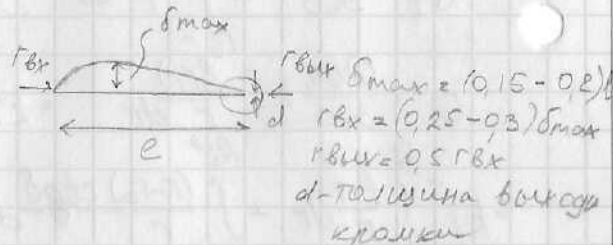 δmax
rвх
rвых
δmax = (0,15 - 0,2)
d
rвх = (0,25 - 0,3) δmax
e
rвых = 0,5 rвх
d - толщина выходн
кромки